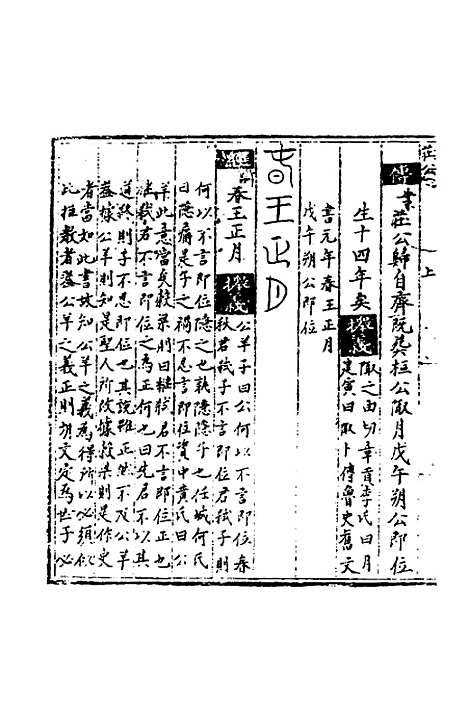 莊公 上
傳 業莊公歸自齊既葬桓公陬月戊午朔公即位
生十四年矣 撥義 陬之由切章首李氏曰月建寅曰陬卜傳魯史舊文
書元年春王正月
戊午朔公即位
春王正月
經 春王正月 撥義 公羊子曰公何以不言即位春秋君弒子不言即位君弒子則
何以不言即位隱之也孰隱隱子也任城何氏
曰隱痛是子之禍不忍言即位資中黃氏曰公
羊此意當矣穀梁則曰繼弒君不言即位正也
繼弒君不言即位之為正何也曰先君不以其
道終則子不忍即位也其說雖正然不及公羊
蓋據公羊則知是聖人所改據穀梁則是作史
者當如此書故知公羊之義為得所以必須
此推數者證公羊之義正則胡文定為世子必